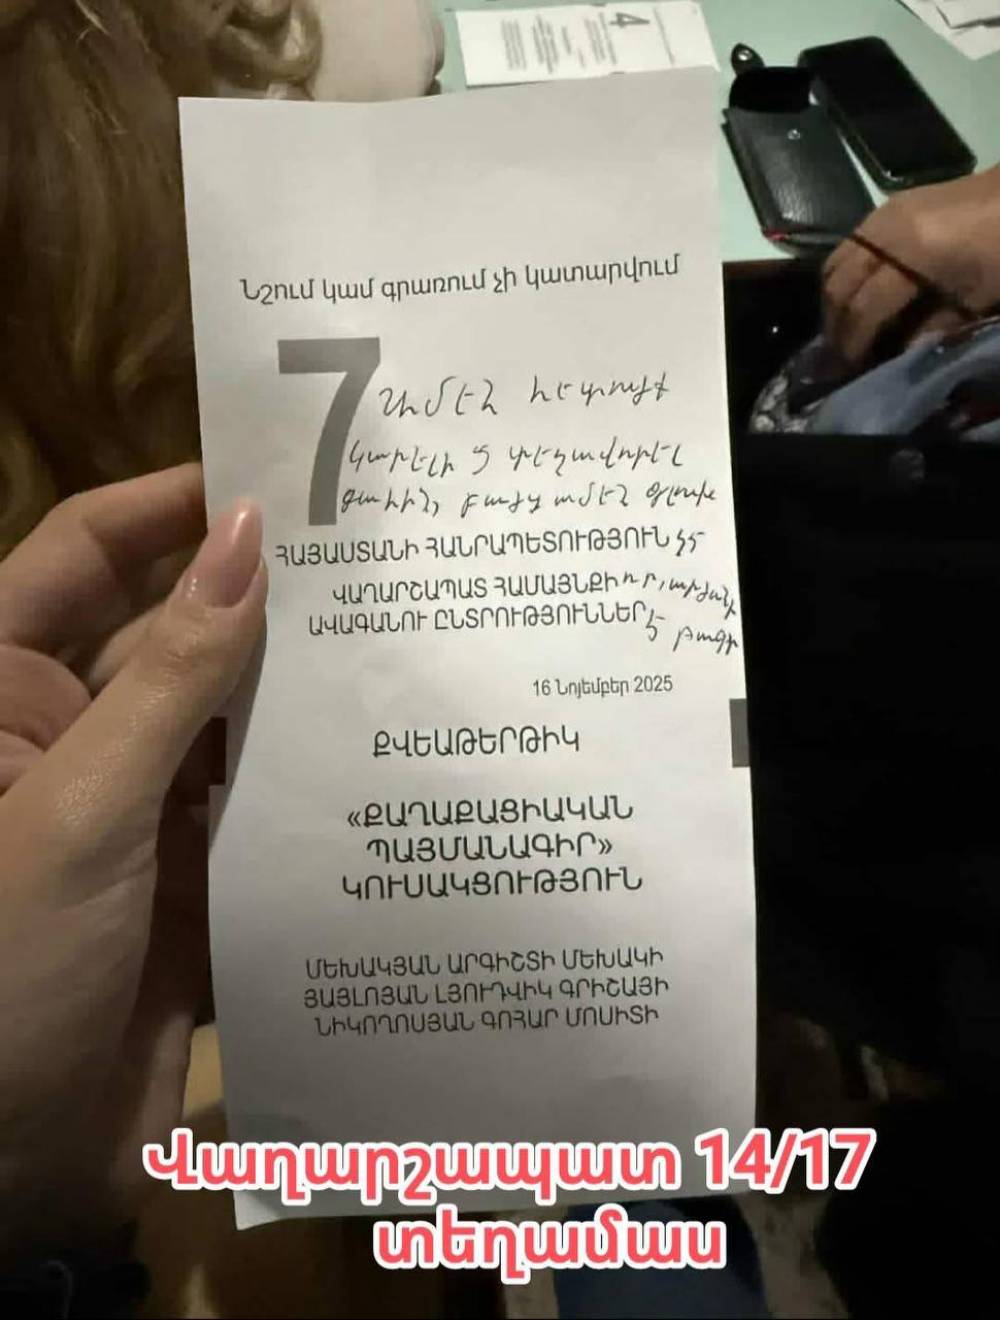 4
Նշում կամ գրառում չի կատարվում
7
Ամեն հետույք
կարելի է տեղավորել
գահին, բայց ամեն գլուխ
ՀԱՅԱՍՏԱՆԻ ՀԱՆՐԱՊԵՏՈՒԹՅՈՒՆ չէ
ՎԱՂԱՐՇԱՊԱՏ ՀԱՄԱՅՆՔԻ որ, արժանի
ԱՎԱԳԱՆՈՒ ԸՆՏՐՈՒԹՅՈՒՆՆԵՐ է թագի
16 Նոյեմբեր 2025
ՔՎԵԱԹԵՐԹԻԿ
«ՔԱՂԱՔԱՑԻԱԿԱՆ
ՊԱՅՄԱՆԱԳԻՐ»
ԿՈՒՍԱԿՑՈՒԹՅՈՒՆ
ՄԵԽԱԿՅԱՆ ԱՐԳԻՇՏԻ ՄԵԽԱԿԻ
ՅԱՅԼՈՅԱՆ ԼՅՈՒԴՎԻԿ ԳՐԻՇԱՅԻ
ՆԻԿՈՂՈՍՅԱՆ ԳՈՀԱՐ ՄՈՍԻՏԻ
Վաղարշապատ 14/17
տեղամաս